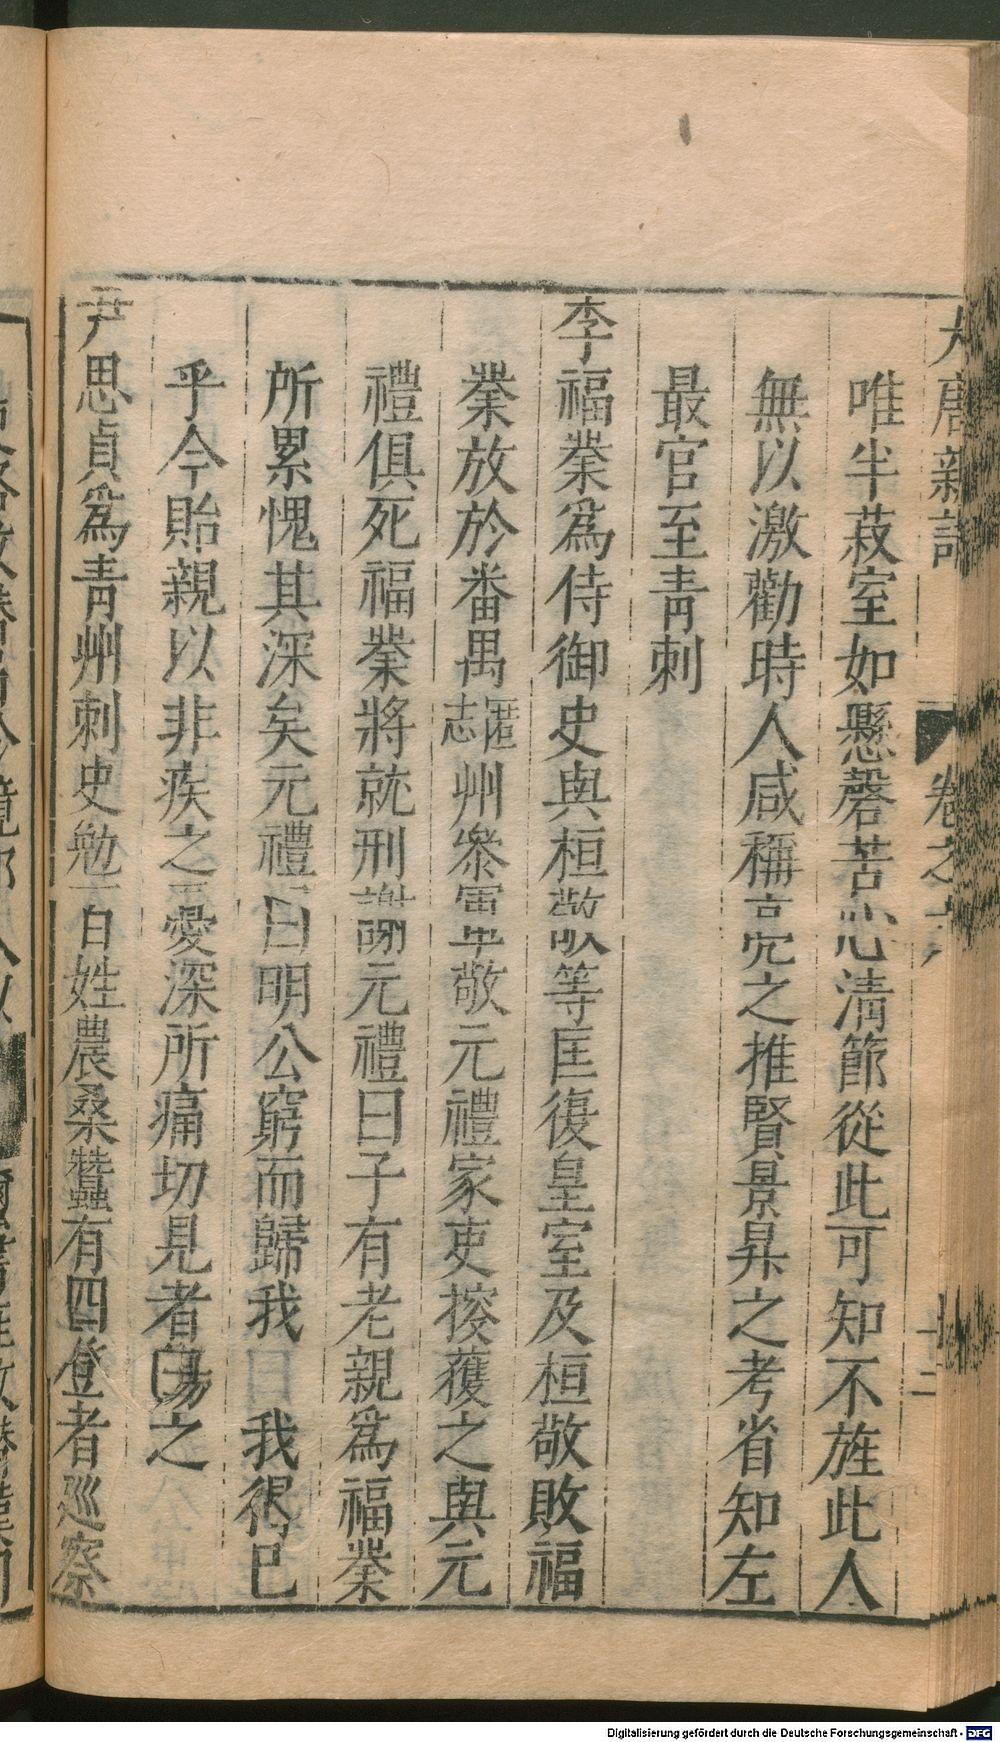 大唐新語
卷之六
十二
唯半菽室如懸磬苦心清節從此可知不旌此人
無以激勸時人咸稱亮之推賢景昇之考省知左
最官至青刺
李福業爲侍御史與桓敬等匡復皇室及桓敬敗福
業放於番禺匿志州叅軍敬元禮家吏搜獲之與元
禮俱死福業將就刑謝元禮曰子有老親爲福業
所累愧其深矣元禮曰明公窮而歸我我得已
乎今貽親以非疾之憂深所痛切見者傷之
尹思貞爲青州刺史勉百姓農桑蠶有四登者巡察
Digitalisierung gefördert durch die Deutsche Forschungsgemeinschaft - DFG